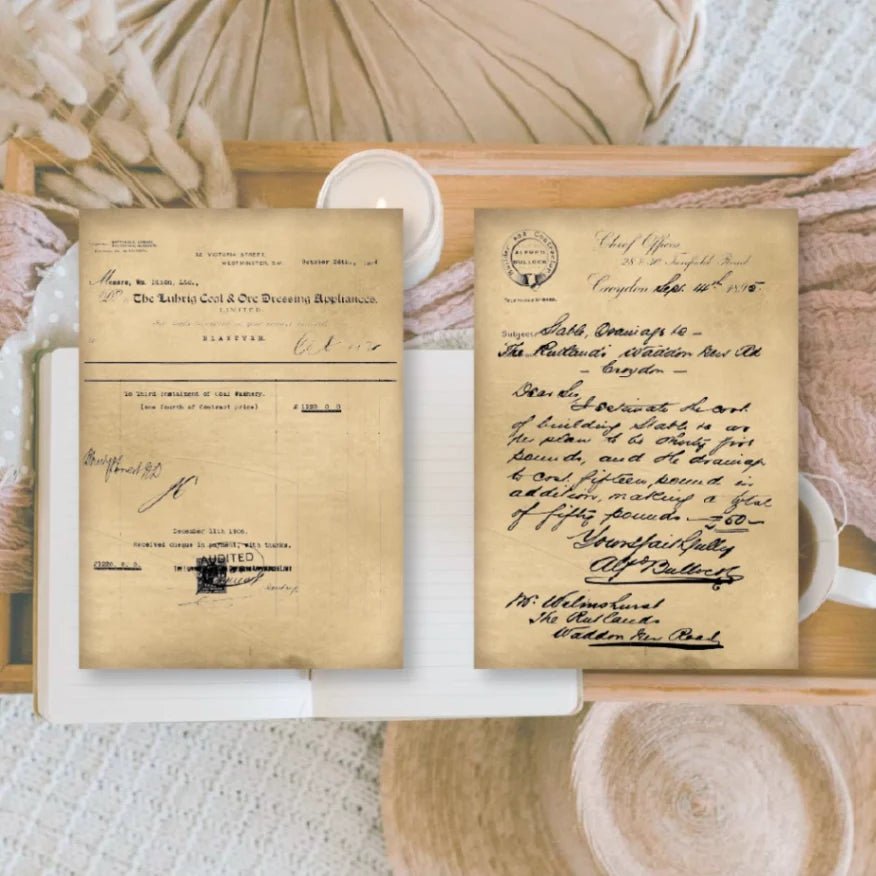 32 VICTORIA STREET,
WESTMINSTER, S.W. October 26th,
Messrs. Wm. Dixon, Ltd.,
The Luhrig Coal & Ore Dressing Appliances,
LIMITED.
BLANTYRE.
To Third instalment of Coal Washery.
(one fourth of Contract price) £ 1220 0 0
December 11th 1905.
Received cheque in payment, with thanks.
£1220. 0. 0.
AUDITED
Builder and Contractor
ALFRED
BULLOCK
Chief Offices
28 & 30 Fairfield Road
Croydon Sept 14th 1895
Subject: Stable, Drainage to —
The Rutlands Waddon New Rd
— Croydon —
Dear Sir,
I estimate the cost
of building Stable to as
per plan to be thirty five
pounds, and the drainage
to cost fifteen pound in
addition, making a total
of fifty pounds — £50 —
Yours faithfully
Alfd Bullock
Mr. Wilmshurst
The Rutlands
Waddon New Road